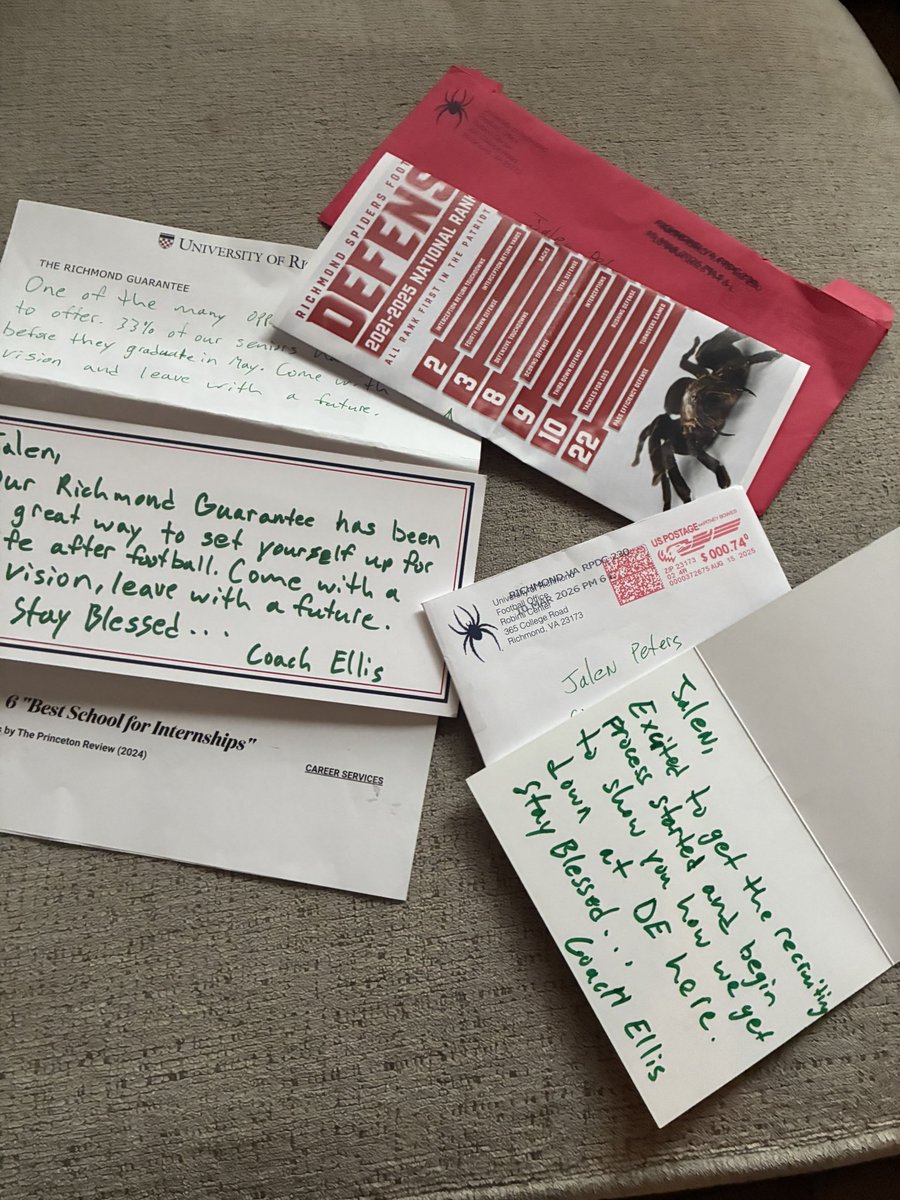 RICHMOND SPIDERS FOOT
DEFENS
2021-2025 NATIONAL RANK
ALL RANK FIRST IN THE PATRIOT
INTERCEPTION RETURN TOUCHDOWNS
INTERCEPTION RETURN YARDS
FOURTH DOWN DEFENSE
SACKS
DEFENSIVE TOUCHDOWNS
TOTAL DEFENSE
SCORING DEFENSE
INTERCEPTIONS
THIRD DOWN DEFENSE
RUSHING DEFENSE
TACKLES FOR LOSS
TURNOVERS GAINED
PASS EFFICIENCY DEFENSE
2
3
8
9
10
22
UNIVERSITY OF RI
THE RICHMOND GUARANTEE
One of the many opp
to offer. 33% of our seniors ha
before they graduate in May. Come with
vision and leave with a future.
Jalen,
Our Richmond Guarantee has been
great way to set yourself up for
fe after football. Come with a
vision, leave with a future.
Stay Blessed...
Coach Ellis
6 "Best School for Internships"
s by The Princeton Review (2024)
CAREER SERVICES
RICHMOND VA RPDC 230
MAR 2026 PM 6
Football Office
Robins Center
365 College Road
Richmond, VA 23173
US POSTAGE PITNEY BOWES
ZIP 23173 $ 000.74⁰
02 4R
0000372675 AUG 15 2025
Jalen Peters
Jalen,
Excited to get the recruiting
process started and begin
to show you how we get
down at DE here.
Stay Blessed...
Coach Ellis